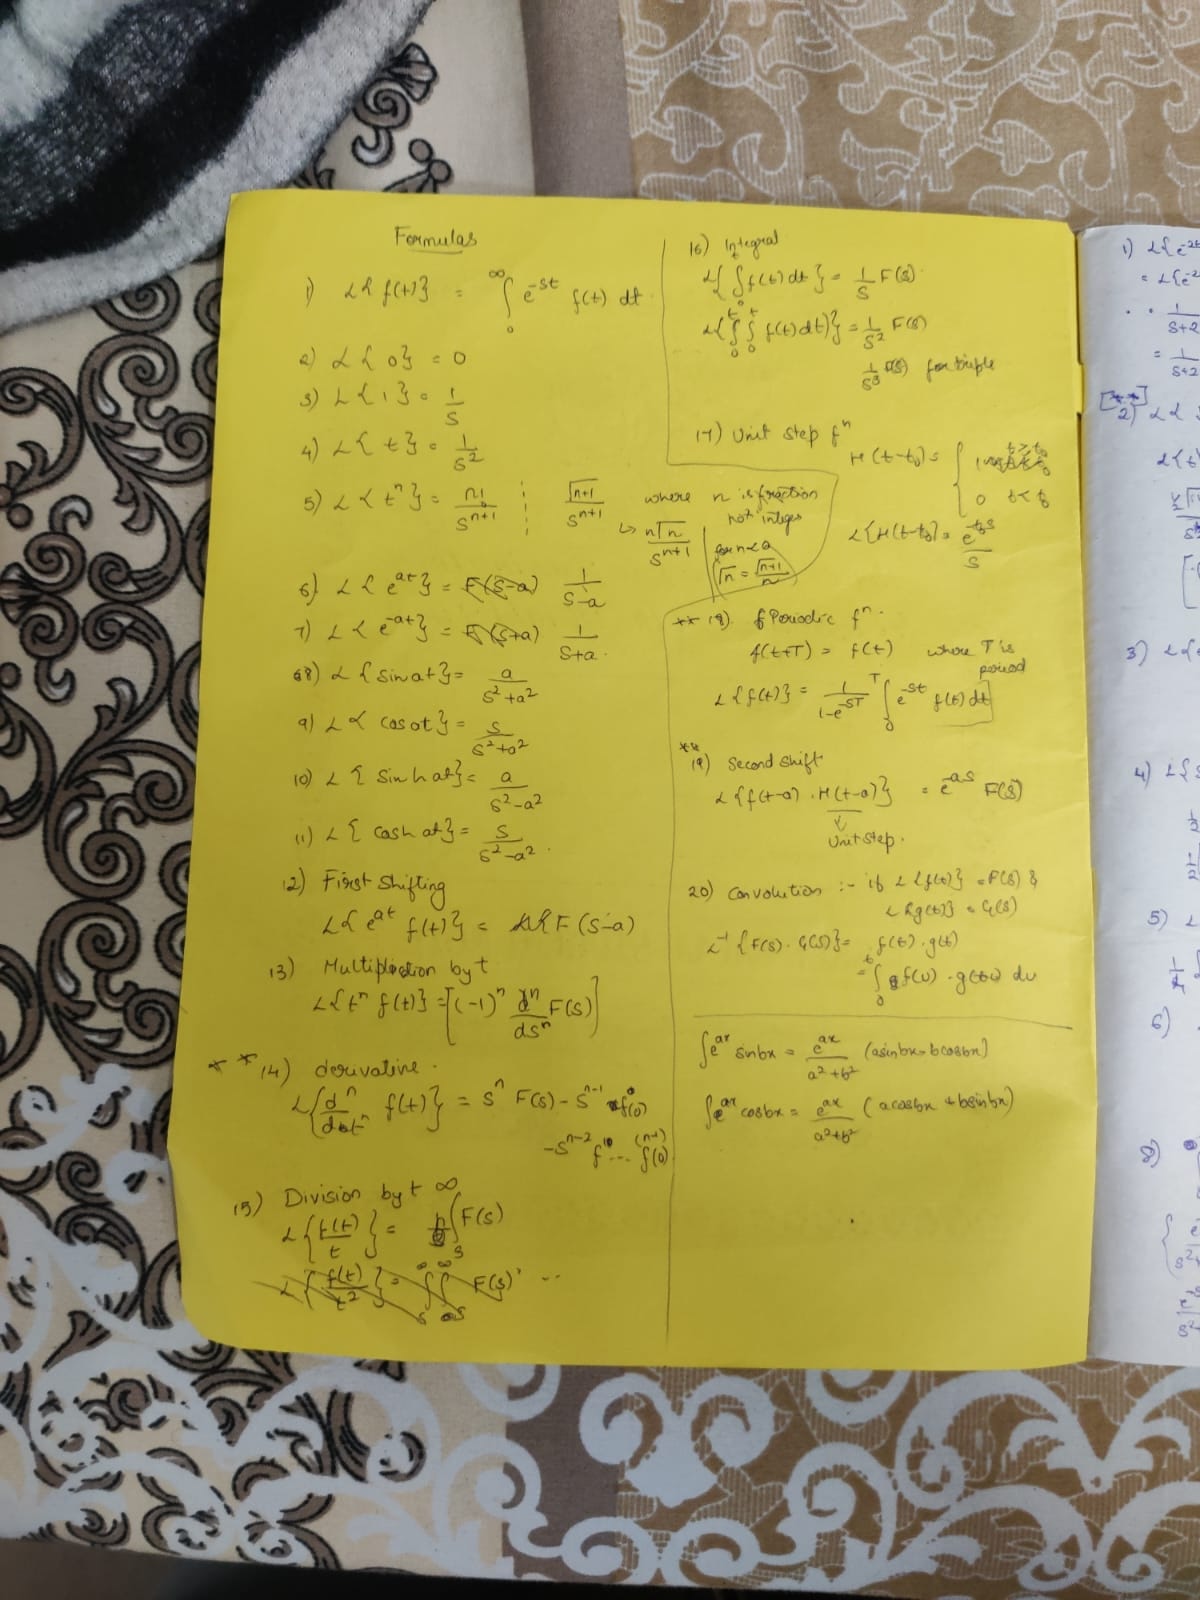 Formulas
1) L{f(t)} = ∫₀^∞ e^-st f(t) dt
2) L{0} = 0
3) L{1} = 1/s
4) L{t} = 1/s²
5) L{t^n} = n!/s^n+1 ¦ √n+1/s^n+1 where n is fraction
not integer
↳ n√n/s^n+1 | for n<0
√n = √n+1/n
6) L{e^at} = F(s-a) 1/s-a
7) L{e^-at} = F(s+a) 1/s+a.
8) L{sin at} = a/s²+a²
9) L{cos at} = s/s²+a²
10) L{sinh at} = a/s²-a²
11) L{cosh at} = s/s²-a².
12) First Shifting
L{e^at f(t)} = F(s-a)
13) Multiplication by t
L{t^n f(t)} = [(-1)^n d^n/ds^n F(s)]
** 14) derivative.
L{d^n/dt^n f(t)} = s^n F(s) - s^n-1 f(0)
-s^n-2 f' ... f^(n-1)(0)
15) Division by t
L{f(t)/t} = ∫s^∞ F(s)
L{f(t)/t²} = ∫s^∞ ∫s^∞ F(s) ...
16) Integral
L{∫₀ f(t) dt} = 1/s F(s)
L{∫₀^t ∫₀^t f(t) dt)} = 1/s² F(s)
1/s³ F(s) for triple
17) Unit step f^n
H(t-t₀) = { 1 t≥t₀
0 t<t₀
L{H(t-t₀) = e^-t₀s/s
** 18) Periodic f^n.
f(t+T) = f(t) where T is
period
L{f(t)} = 1/1-e^-sT ∫₀^T e^-st f(t) dt
**
19) Second shift
L{f(t-a) · H(t-a)} = e^-as F(s)
Unit step.
20) Convolution :- if L{f(t)} = F(s) &
L{g(t)} = G(s)
L^-1{F(s) · G(s)} = f(t) · g(t)
= ∫₀^t f(u) · g(t-u) du
∫e^ax sinbx = e^ax/a²+b² (asinbx-bcosbx)
∫e^ax cosbx = e^ax/a²+b² (acosbx + bsinbx)
1) L{e^-2t
= L{e^-2
1/s+2
= 1/s+2
[**]
2) L{
L{t
3) L{
4) L{s
1/2
5) L
6)
8)